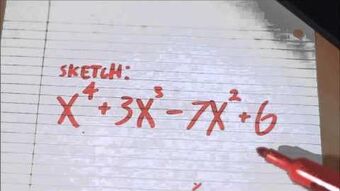 SKETCH:
x⁴+3x³-7x²+6